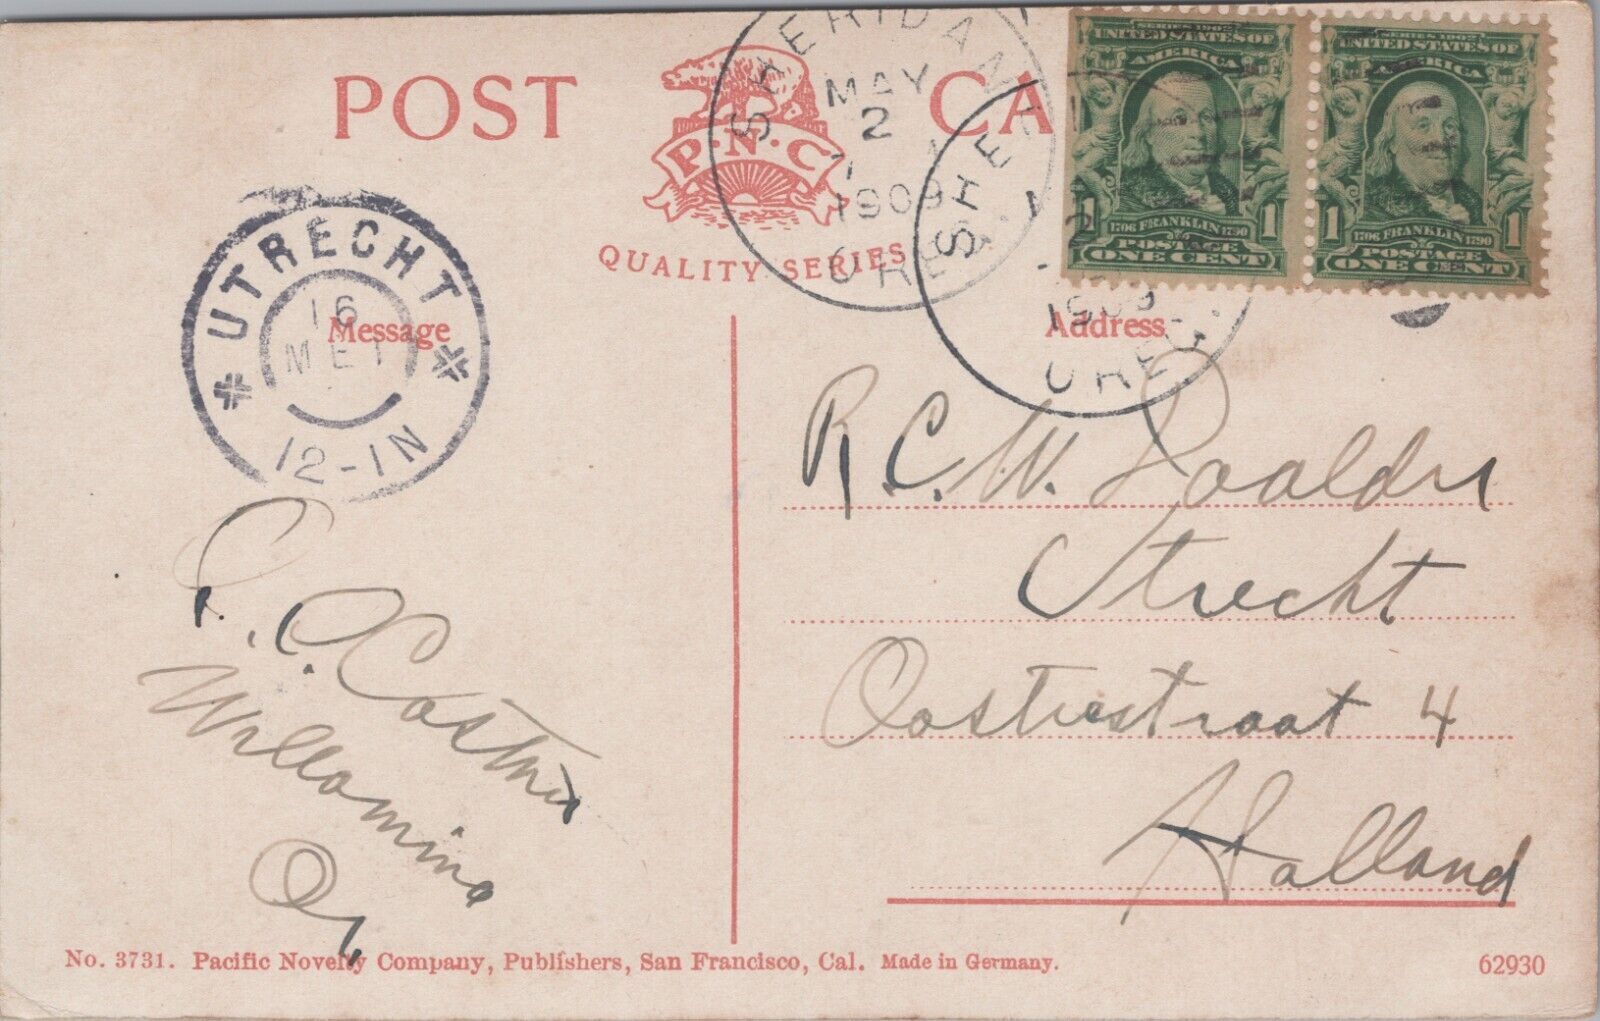 POST CA
P·N·C
QUALITY SERIES
SHERIDAN
MAY
2
1909
OREG.
SHER
2
1909
OREG.
SERIES 1902
UNITED STATES OF
AMERICA
1 1
1706 FRANKLIN 1790
POSTAGE
ONE CENT
SERIES 1902
UNITED STATES OF
AMERICA
1 1
1706 FRANKLIN 1790
POSTAGE
ONE CENT
UTRECHT
16
MEI
12-1N
Message
Address
R.C.W.
Utrecht
Oosterstraat 4
Holland
C.
Willamina
Or
No. 3731. Pacific Novelty Company, Publishers, San Francisco, Cal. Made in Germany.
62930